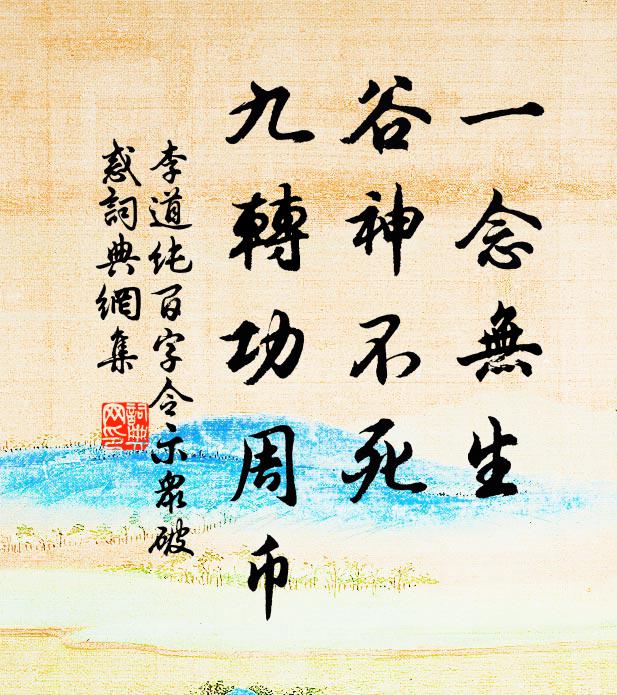 一念無生
谷神不死
九轉功周帀
李道纯百字令示眾破
惑詞典網集
詞典网印